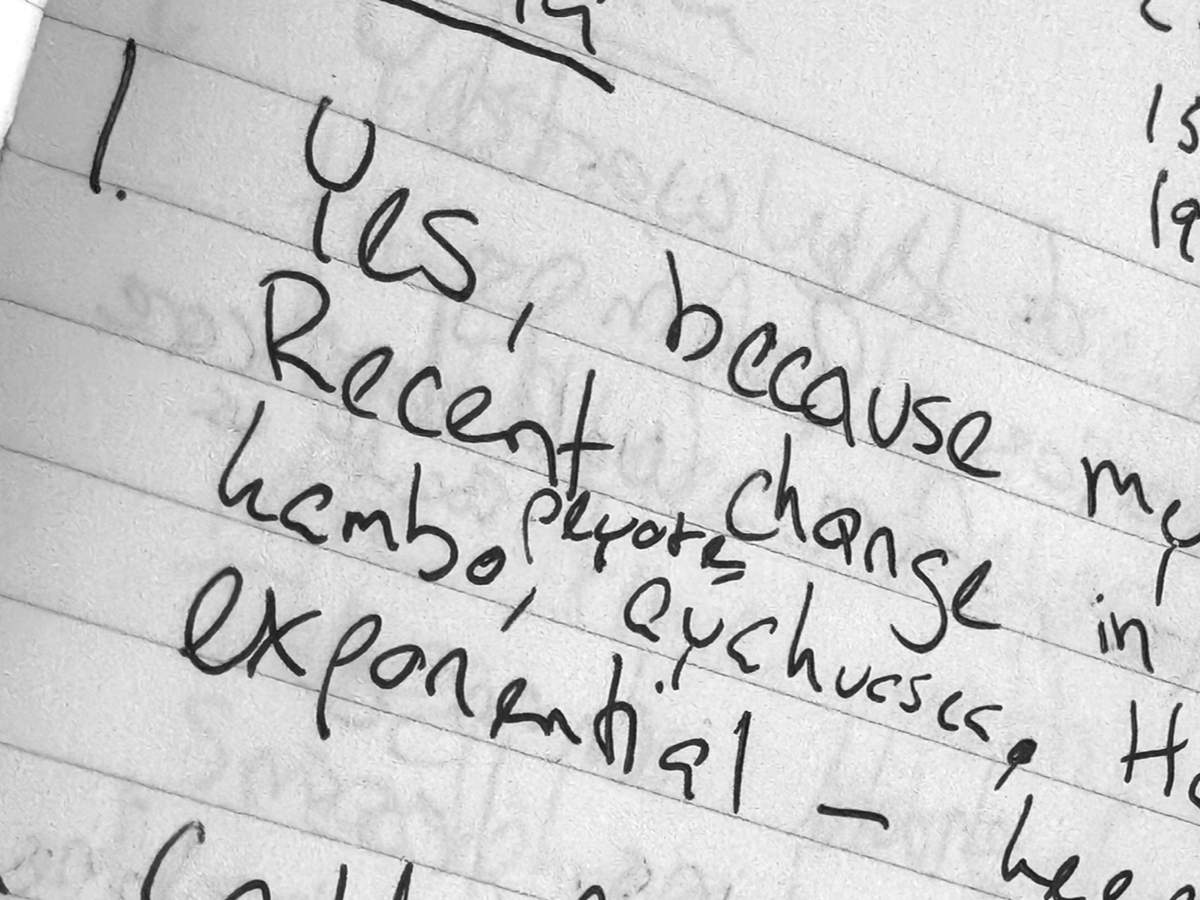 1. Yes, because my
Recent change in
hambo, peyote, ayahuasca, H
exponential —